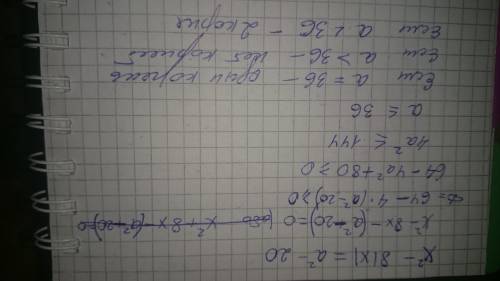 x² - 8|x| = a² - 20
x² - 8x - (a² - 20) = 0 (або x² + 8x - (a² - 20) = 0
D = 64 - 4 · (a² - 20) ≥ 0
64 - 4a² + 80 ≥ 0
4a² ≤ 144
a ≤ 36
Если a = 36 - один корень
Если a > 36 - нет корней
Если a < 36 - 2 корня